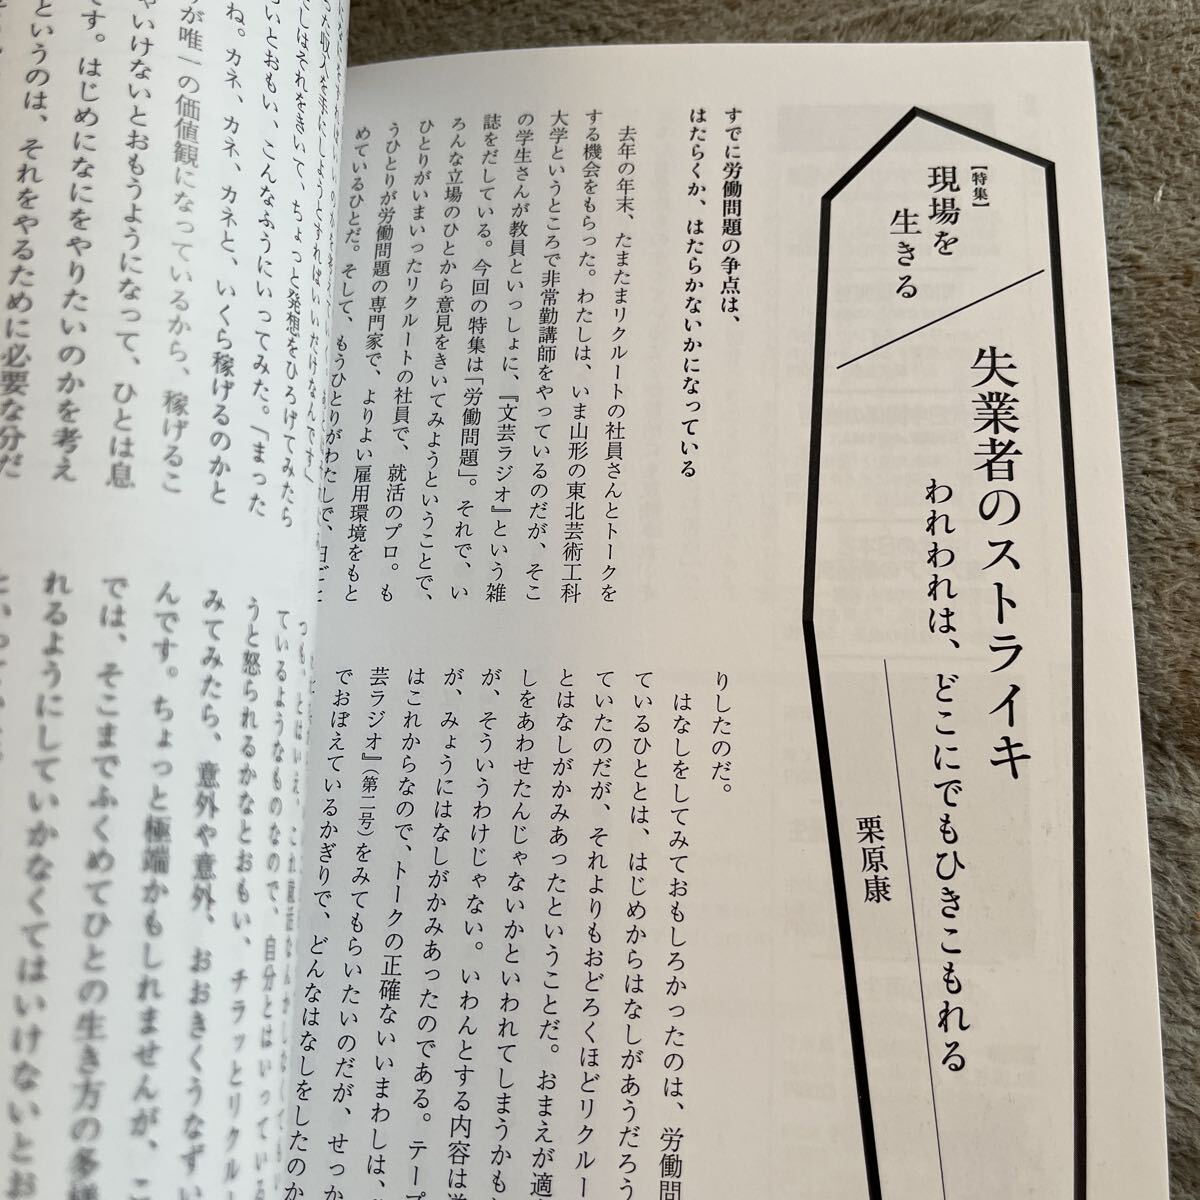 【特集】
現場を
生きる
失業者のストライキ
われわれは、どこにでもひきこもれる
栗原康
すでに労働問題の争点は、
はたらくか、はたらかないかになっている
去年の年末、たまたまリクルートの社員さんとトークを
する機会をもらった。わたしは、いま山形の東北芸術工科
大学というところで非常勤講師をやっているのだが、そこ
の学生さんが教員といっしょに、『文芸ラジオ』という雑
誌をだしている。今回の特集は「労働問題」。それで、い
ろんな立場のひとから意見をきいてみようということで、
ひとりがいまいったリクルートの社員で、就活のプロ。も
うひとりが労働問題の専門家で、よりよい雇用環境をもと
めているひとだ。そして、もうひとりがわたしで、
りしたのだ。
はなしをしてみておもしろかったのは、労働問
ているひととは、はじめからはなしがあうだろう
ていたのだが、それよりもおどろくほどリクルー
とはなしがかみあったということだ。おまえが適
しをあわせたんじゃないかといわれてしまうかも
が、そういうわけじゃない。いわんとする内容は
が、みょうにはなしがかみあったのである。テー
はこれからなので、トークの正確ないいまわしは、
芸ラジオ』（第二号）をみてもらいたいのだが、せっか
でおぼえているかぎりで、どんなはなしをしたのか
った収入を手にしようとすればいいだけなんです」
しはそれをきいて、ちょっと発想をひろげてみたら
いとおもい、こんなふうにいってみた。「まった
ね。カネ、カネ、カネと、いくら稼げるのかと
が唯一の価値観になっているから、稼げるこ
ゃいけないとおもうようになって、ひとは息
です。はじめになにをやりたいのかを考え
というのは、それをやるために必要な分だ
ているようなものなので、自分とはいっている
うと怒られるかなとおもい、チラッとリクル
みてみたら、意外や意外、おおきくうなずい
んです。ちょっと極端かもしれませんが、こ
では、そこまでふくめてひとの生き方の多様
れるようにしていかなくてはいけないとお